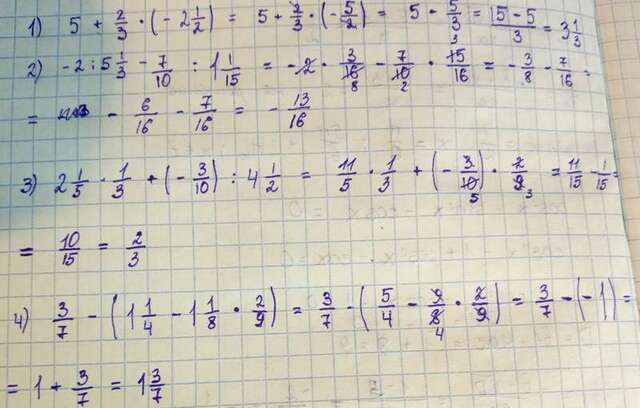 1) 5 + 2/3 · (- 2 1/2) = 5 + 2/3 · (- 5/2) = 5 - 5/3 = (15 - 5)/3 = 3 1/3
2) - 2 : 5 1/3 - 7/10 : 1 1/15 = - 2 · 3/16 8 - 7/10 2 · 15/16 = - 3/8 - 7/16 =
= - 6/16 - 7/16 = - 13/16
3) 2 1/5 · 1/3 + (- 3/10) : 4 1/2 = 11/5 · 1/3 + (- 3/10 5) · 2/9 3 = 11/15 - 1/15 =
= 10/15 = 2/3
4) 3/7 - (1 1/4 - 1 1/8 · 2/9) = 3/7 - (5/4 - 9/8 4 · 2/9) = 3/7 - (- 1) =
= 1 + 3/7 = 1 3/7